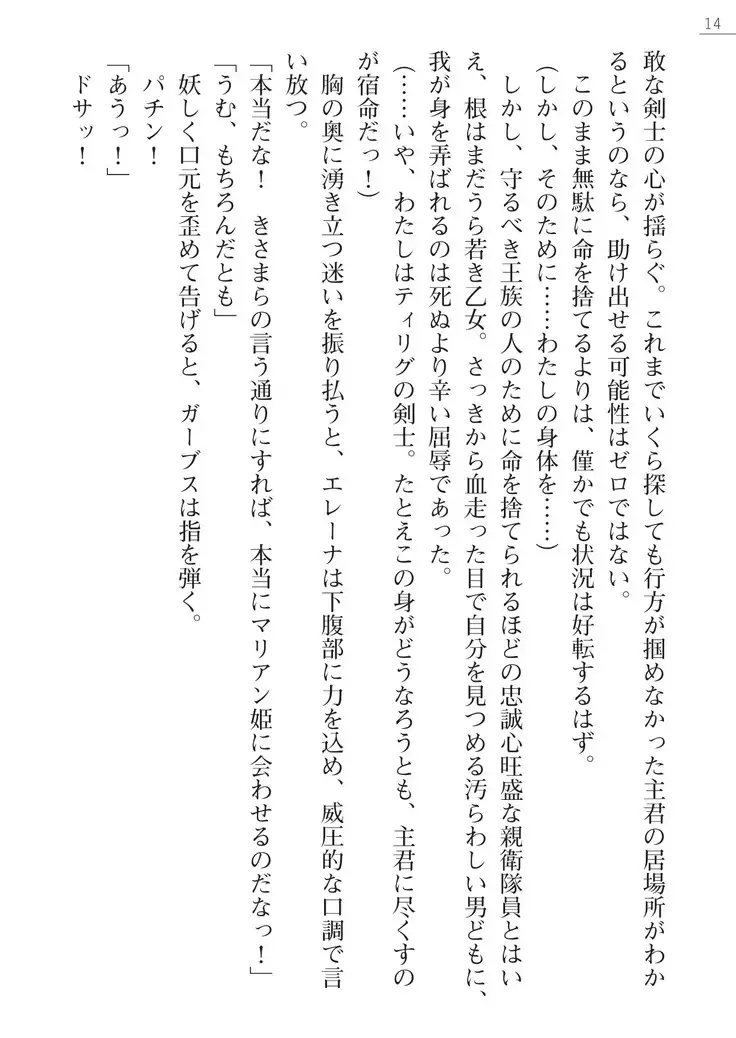 14
敢な剣士の心が揺らぐ。これまでいくら探しても行方が掴めなかった主君の居場所がわか
るというのなら、助け出せる可能性はゼロではない。
このまま無駄に命を捨てるよりは、僅かでも状況は好転するはず。
(しかし、そのために……わたしの身体を……)
しかし、守るべき王族の人のために命を捨てられるほどの忠誠心旺盛な親衛隊員とはい
え、根はまだうら若き乙女。さっきから血走った目で自分を見つめる汚らわしい男どもに、
我が身を弄ばれるのは死ぬより辛い屈辱であった。
(……いや、わたしはティリグの剣士。たとえこの身がどうなろうとも、主君に尽くすの
が宿命だっ!)
胸の奥に湧き立つ迷いを振り払うと、エレーナは下腹部に力を込め、威圧的な口調で言
い放つ。
「本当だな! きさまらの言う通りにすれば、本当にマリアン姫に会わせるのだなっ!」
「うむ、もちろんだとも」
妖しく口元を歪めて告げると、ガーブスは指を弾く。
パチン!
「あうっ!」
ドサッ!